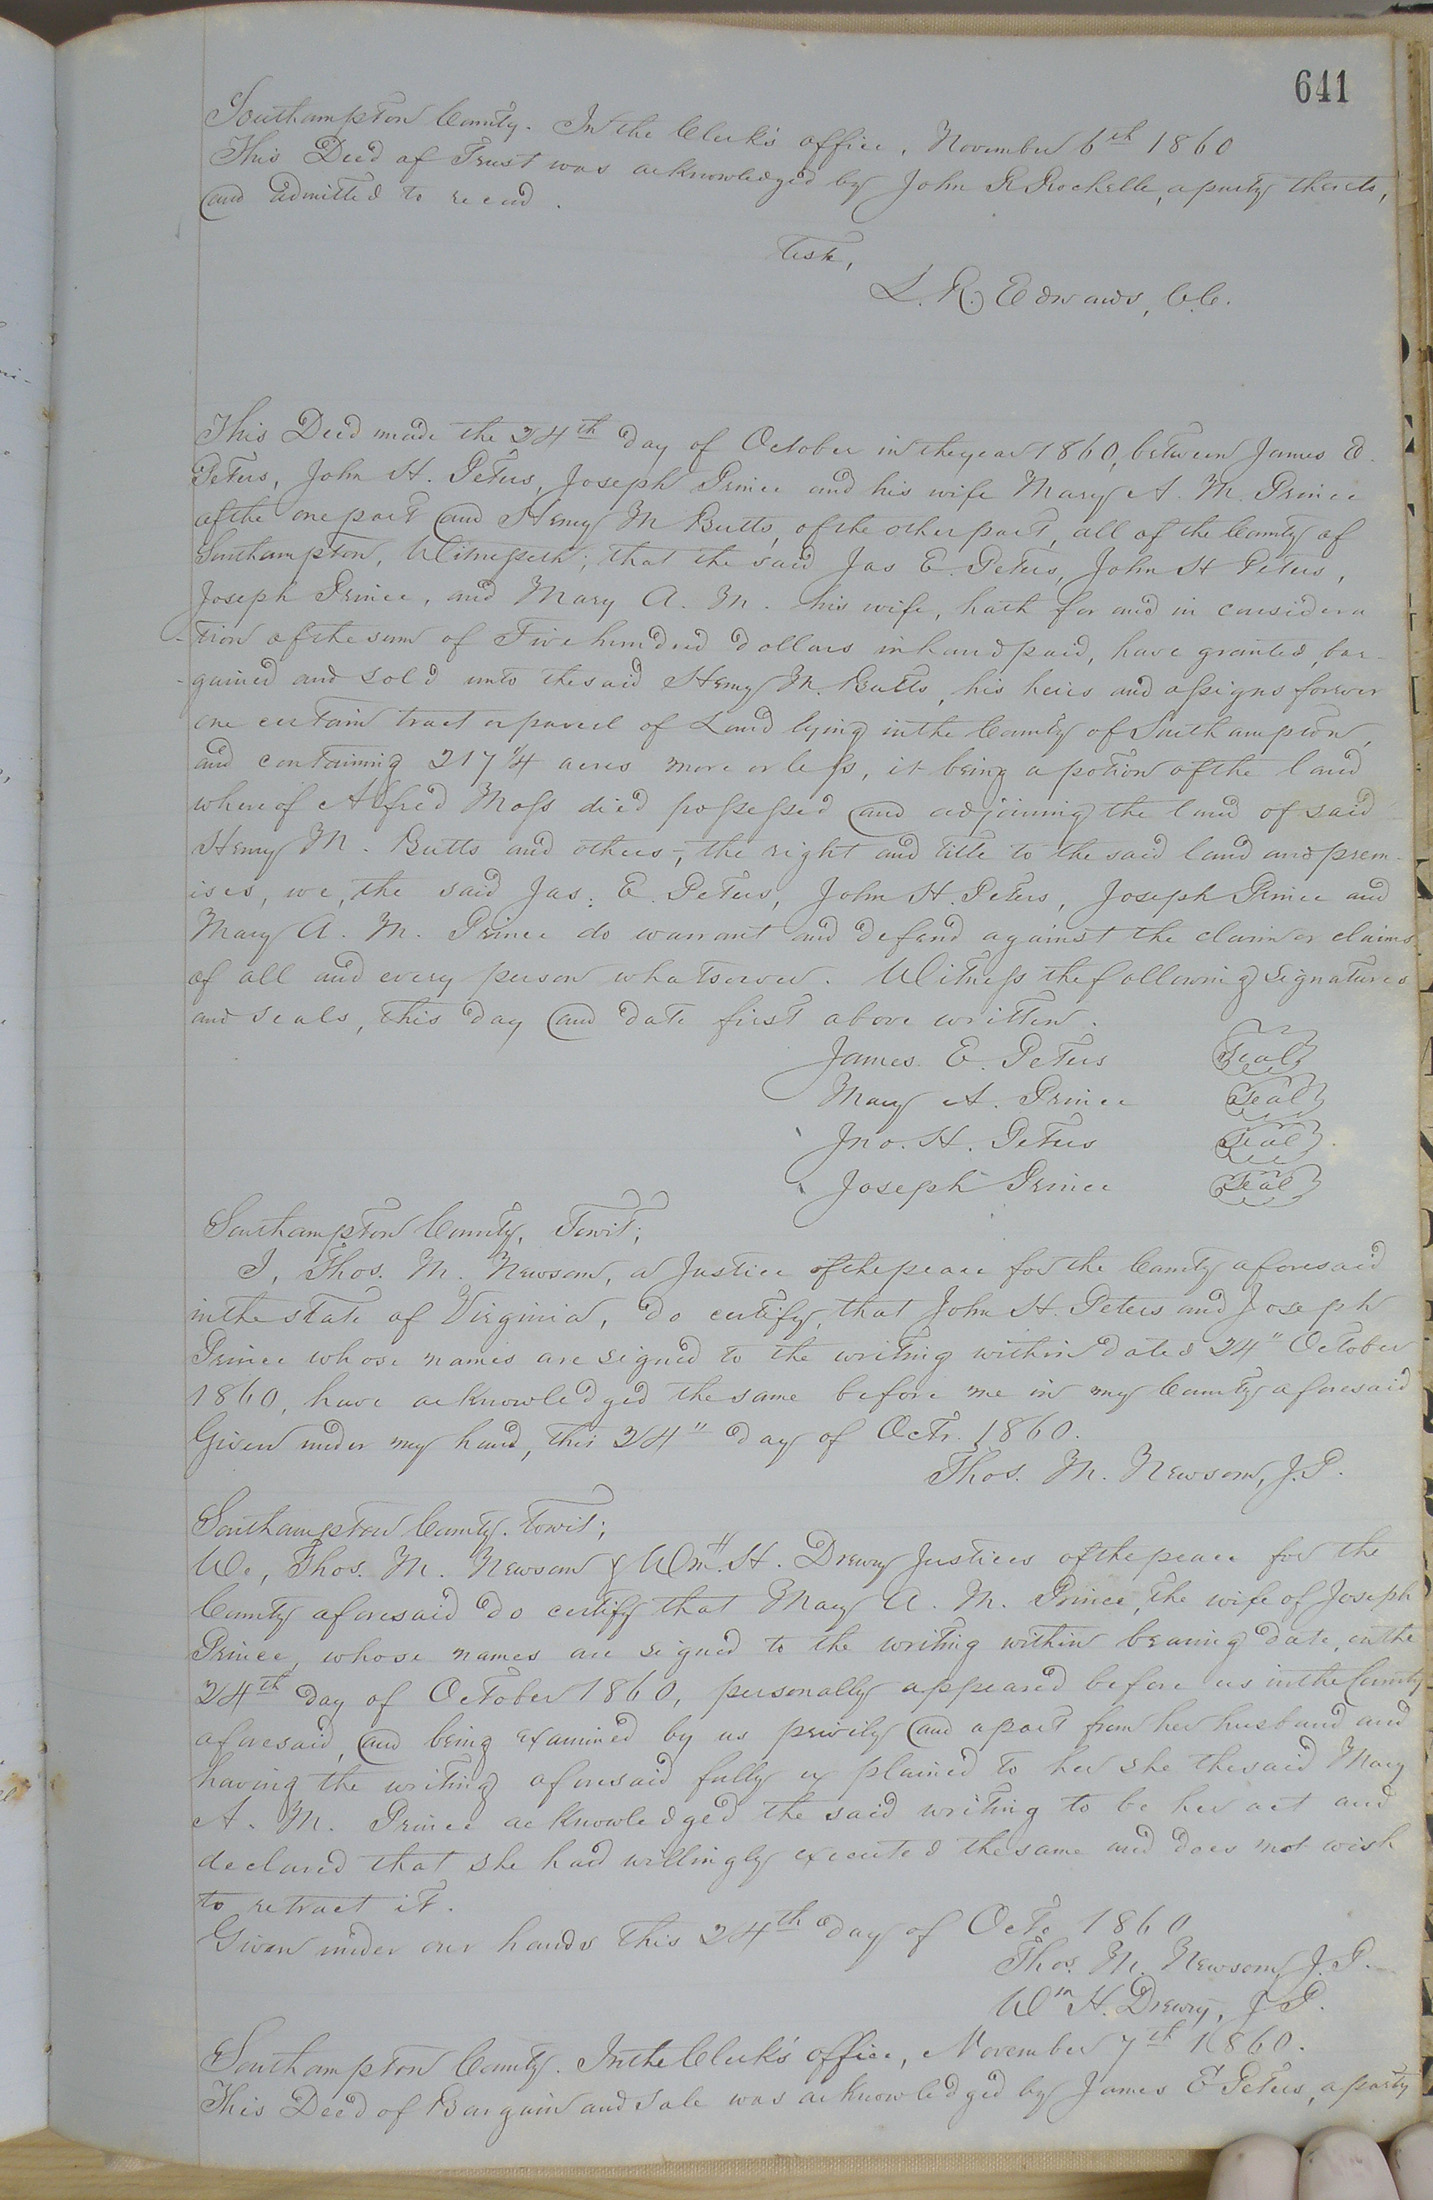 641
Southampton County. In the Clerk's office, November 6th 1860
This Deed of Trust was acknowledged by John R Rochelle, a party thereto,
and admitted to record.
Teste,
L. R. Edwards, C.C.
This Deed made the 24th day of October in the year 1860, between James E.
Peters, John H. Peters, Joseph Prince and his wife Mary A. M. Prince
of the one part and Henry M Butts, of the other part, all of the County of
Southampton, Witnesseth; that the said Jas E. Peters, John H Peters,
Joseph Prince, and Mary A. M. his wife, hath for and in considera
-tion of the sum of Five hundred dollars in hand paid, have granted, bar-
-gained and sold unto the said Henry M. Butts, his heirs and assigns forever
one certain tract or parcel of Land lying in the County of Southampton,
and containing 217 1/4 acres more or less, it being a potion of the land
whereof Alfred Moss died possessed and adjoining the land of said
Henry M. Butts and others-, the right and title to the said land and prem-
ises, we, the said Jas. E. Peters, John H. Peters, Joseph Prince and
Mary A. M. Prince do warrant and defend against the claim or claims
of all and every person whatsoever. Witness the following signatures
and seals, this day and date first above written.
James. E. Peters Seal
Mary A. Prince Seal
Jno. H. Peters Seal
Joseph Prince Seal
Southampton County, Towit;
I, Thos. M. Newsom, a Justice of the peace for the County aforesaid
in the state of Virginia, do certify, that John H. Peters and Joseph
Prince whose names are signed to the writing within dated 24" October
1860, have acknowledged the same before me in my County aforesaid
Given under my hand, this 24" day of Octr. 1860.
Thos. M. Newsom, J.P.
Southampton County. towit;
We, Thos. M. Newsom & Wm. H. Drewry Justices of the peace for the
County aforesaid do certify that Mary A. M. Prince, the wife of Joseph
Prince, whose names are signed to the writing within bearing date, on the
24th day of October 1860, personally appeared before us in the County
aforesaid, and being examined by us privily and apart from her husband and
having the writing aforesaid fully explained to her she the said Mary
A. M. Prince acknowledged the said writing to be her act and
declared that she had willingly executed the same and does not wish
to retract it.
Given under our hands this 24th day of Octo. 1860
Thos. M. Newsom, J.P.
Wm H. Drewry, J.P.
Southampton County. In the Clerk's office, November 7th 1860.
This Deed of Bargain and sale was acknowledged by James E Peters, a party